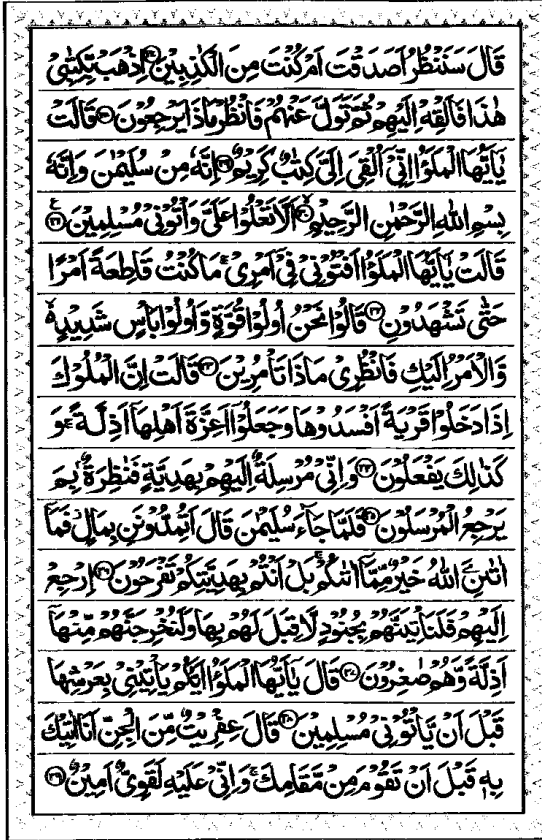 قَالَ سَنَنْظُرُ اَصَدَقْتَ اَمْ كُنْتَ مِنَ الْكٰذِبِيْنَ ﴿۲۷﴾ اِذْهَبْ بِّكِتٰبِيْ
هٰذَا فَاَلْقِهْ اِلَيْهِمْ ثُمَّ تَوَلَّ عَنْهُمْ فَانْظُرْ مَاذَا يَرْجِعُوْنَ ﴿۲۸﴾ قَالَتْ
يٰۤاَيُّهَا الْمَلَؤُا اِنِّيْۤ اُلْقِيَ اِلَيَّ كِتٰبٌ كَرِيْمٌ ﴿۲۹﴾ اِنَّهٗ مِنْ سُلَيْمٰنَ وَاِنَّهٗ
بِسْمِ اللّٰهِ الرَّحْمٰنِ الرَّحِيْمِ ﴿۳۰﴾ اَلَّا تَعْلُوْا عَلَيَّ وَاْتُوْنِيْ مُسْلِمِيْنَ ﴿۳۱﴾ ع
قَالَتْ يٰۤاَيُّهَا الْمَلَؤُا اَفْتُوْنِيْ فِيْۤ اَمْرِيْ ۚ مَا كُنْتُ قَاطِعَةً اَمْرًا
حَتّٰى تَشْهَدُوْنِ ﴿۳۲﴾ قَالُوْا نَحْنُ اُولُوْا قُوَّةٍ وَّاُولُوْا بَاْسٍ شَدِيْدٍ ۙ
وَّالْاَمْرُ اِلَيْكِ فَانْظُرِيْ مَاذَا تَاْمُرِيْنَ ﴿۳۳﴾ قَالَتْ اِنَّ الْمُلُوْكَ
اِذَا دَخَلُوْا قَرْيَةً اَفْسَدُوْهَا وَجَعَلُوْۤا اَعِزَّةَ اَهْلِهَاۤ اَذِلَّةً ۚ وَ
كَذٰلِكَ يَفْعَلُوْنَ ﴿۳۴﴾ وَاِنِّيْ مُرْسِلَةٌ اِلَيْهِمْ بِهَدِيَّةٍ فَنٰظِرَةٌۢ بِمَ
يَرْجِعُ الْمُرْسَلُوْنَ ﴿۳۵﴾ فَلَمَّا جَآءَ سُلَيْمٰنَ قَالَ اَتُمِدُّوْنَنِ بِمَالٍ ۫ فَمَاۤ
اٰتٰىنِۦَ اللّٰهُ خَيْرٌ مِّمَّاۤ اٰتٰىكُمْ ۚ بَلْ اَنْتُمْ بِهَدِيَّتِكُمْ تَفْرَحُوْنَ ﴿۳۶﴾ اِرْجِعْ
اِلَيْهِمْ فَلَنَاْتِيَنَّهُمْ بِجُنُوْدٍ لَّا قِبَلَ لَهُمْ بِهَا وَلَنُخْرِجَنَّهُمْ مِّنْهَاۤ
اَذِلَّةً وَّهُمْ صٰغِرُوْنَ ﴿۳۷﴾ قَالَ يٰۤاَيُّهَا الْمَلَؤُا اَيُّكُمْ يَاْتِيْنِيْ بِعَرْشِهَا
قَبْلَ اَنْ يَّاْتُوْنِيْ مُسْلِمِيْنَ ﴿۳۸﴾ قَالَ عِفْرِيْتٌ مِّنَ الْجِنِّ اَنَا اٰتِيْكَ
بِهٖ قَبْلَ اَنْ تَقُوْمَ مِنْ مَّقَامِكَ ۚ وَاِنِّيْ عَلَيْهِ لَقَوِيٌّ اَمِيْنٌ ﴿۳۹﴾